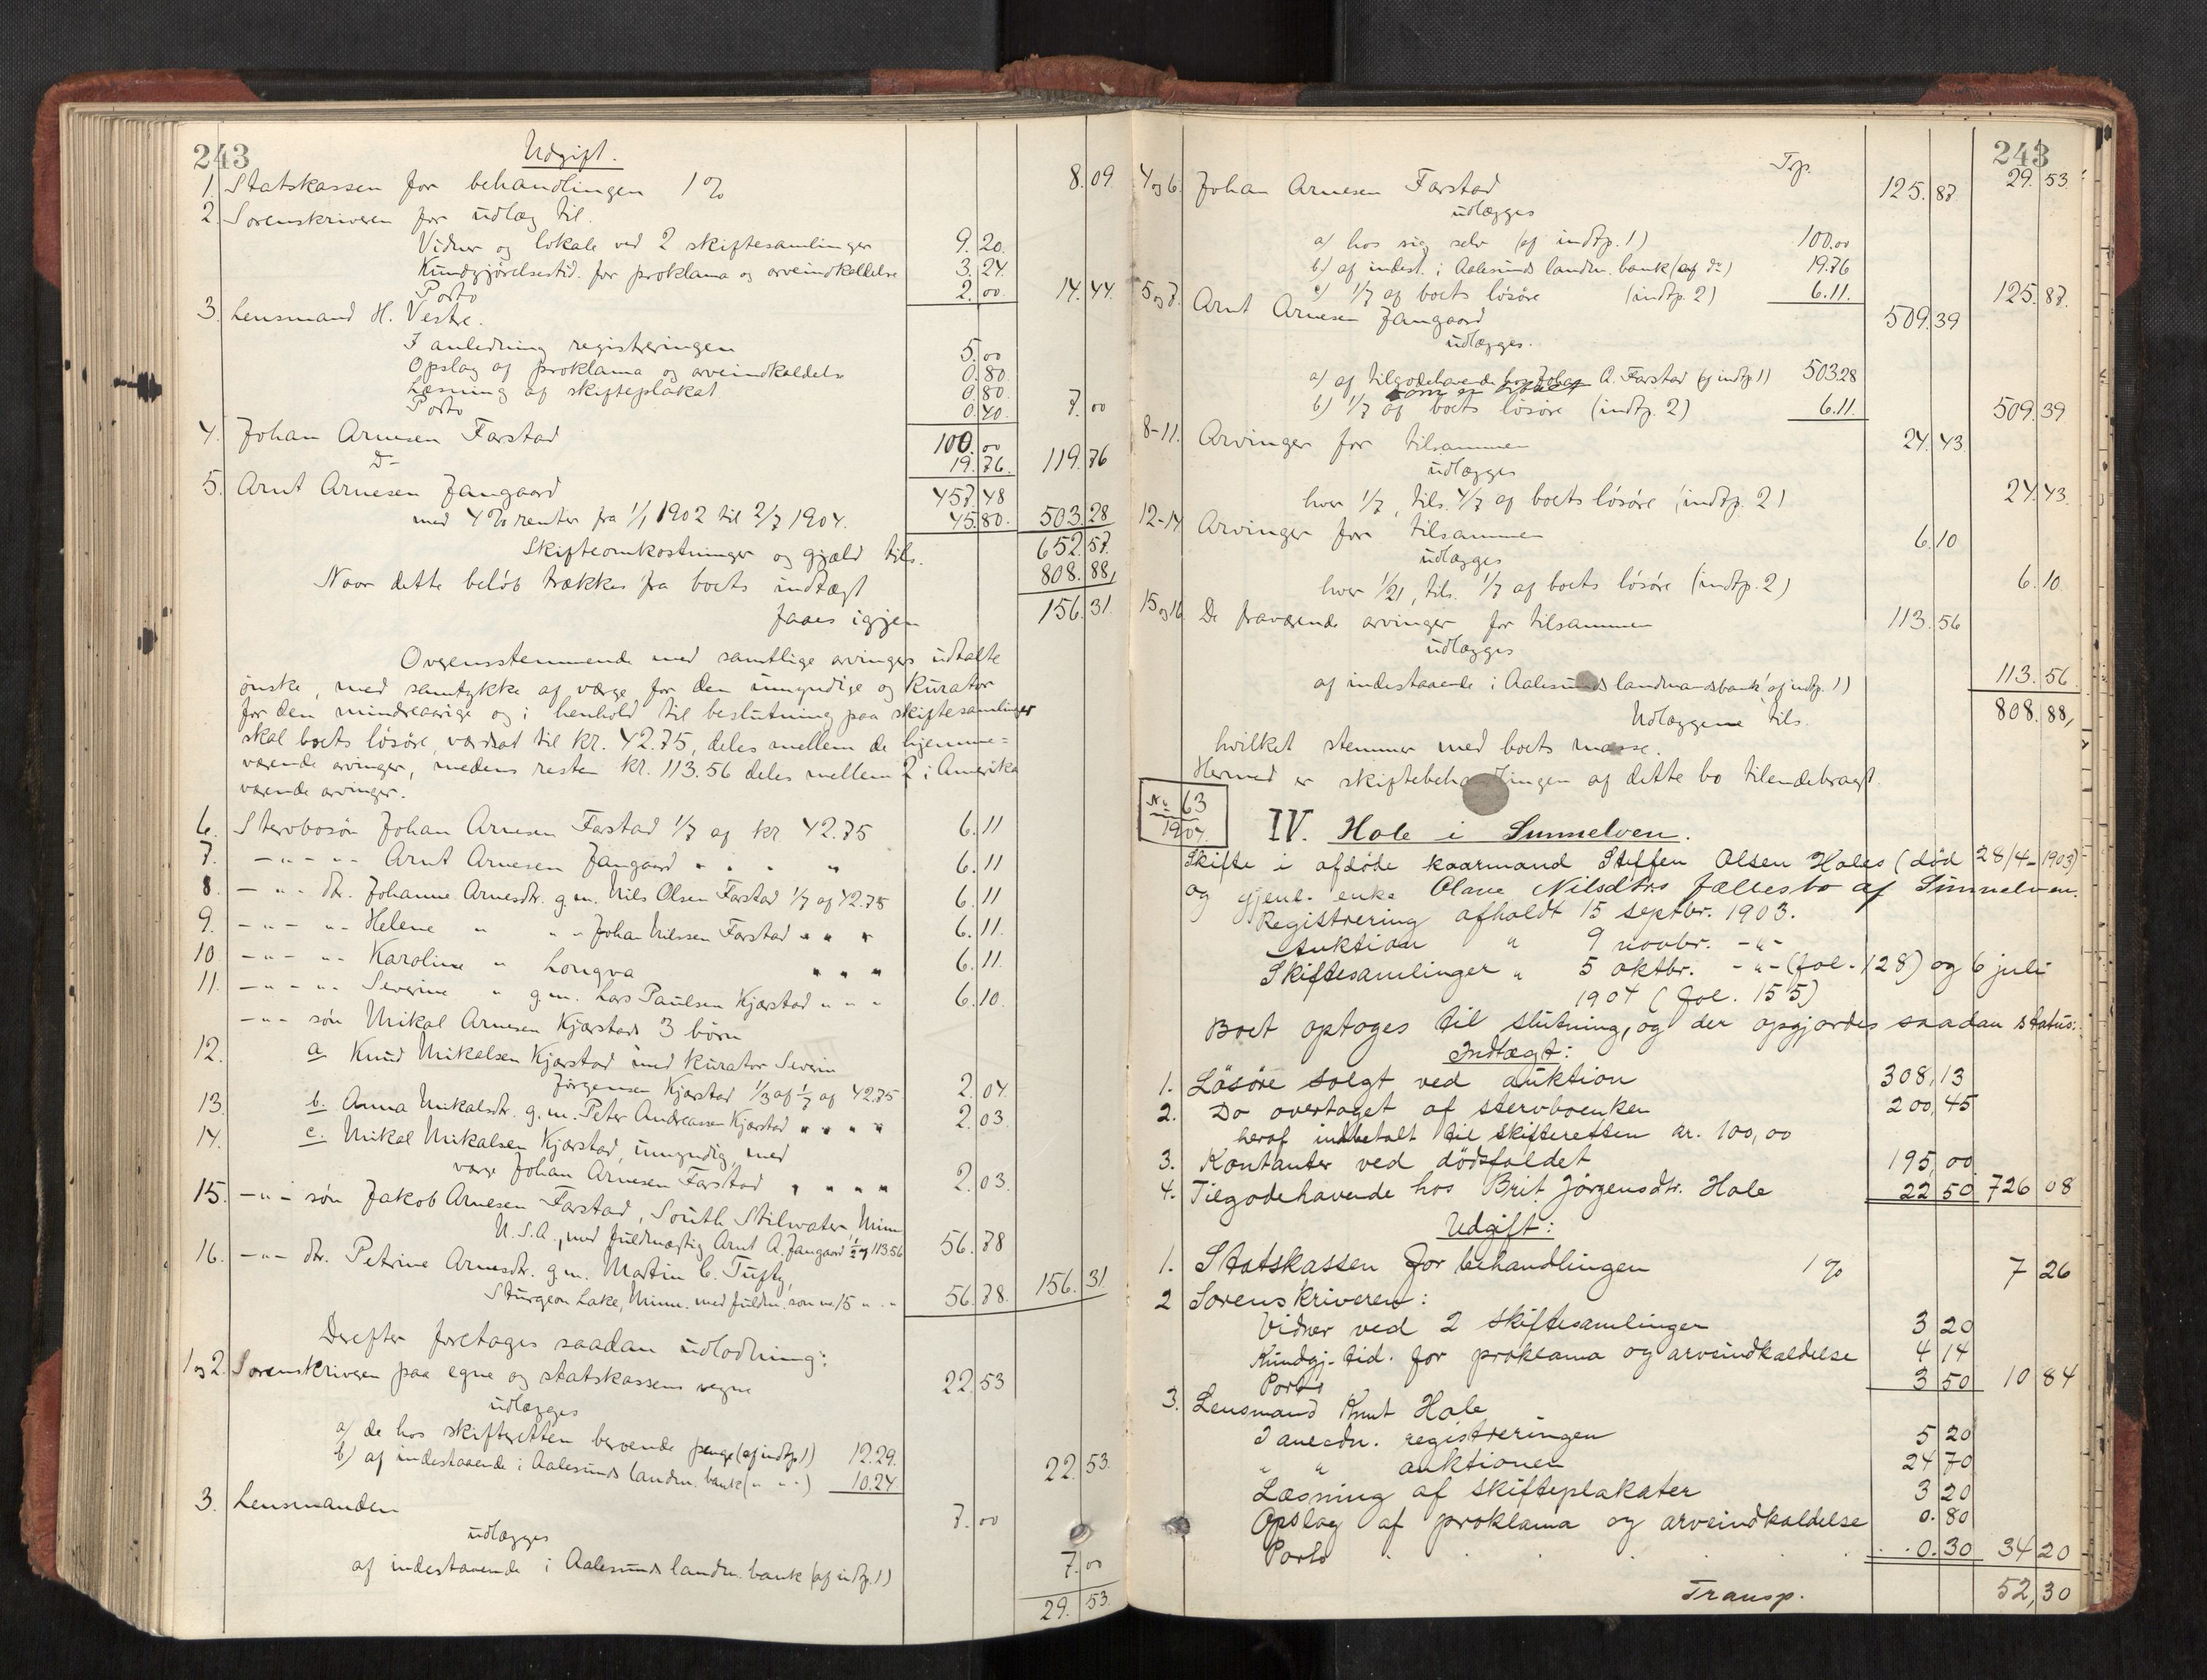 243
Udgift.
1. Statskassen for behandlingen 1% 8.09
2. Sorenskriveren for udlæg til.
Vidner og lokale ved 2 skiftesamlinger 9.20
Kundgjørelsestid. for proklama og arveindkaldelse 3.24
Porto 2.00 14.44
3. Lensmand H. Vestre.
I anledning registreringen 5.00
Opslag af proklama og arveindkaldelse 0.80
Læsning af skifteplakat 0.80
Porto 0.40 7.00
4. Johan Arnesen Farstad 100.00
Do 19.76 119.76
5. Arnt Arnesen Jangaard 457.48
med 4% renter fra 1/1 1902 til 2/7 1904. 45.80 503.28
Skifteomkostninger og gjæld tils. 652.57
Naar dette beløb trækkes fra boets indtægt 808.88,
faaes igjen 156.31
Overensstemmende med samtlige arvingers udtalte
ønske, med samtykke af værge for den umyndige og kurator
for den mindreaarige og i henhold til beslutning paa skiftesamlinger
skal boets løsøre, værdsat til kr. 42.75, deles mellem de hjemme=
værende arvinger, medens resten kr. 113.56 deles mellem 2 i Amerika
værende arvinger.
6. Stervbosøn Johan Arnesen Farstad 1/7 af kr 42.75 6.11
7. -"- -"- Arnt Arnesen Jangaard " " " " 6.11
8. -"- dtr. Johanne Arnesdtr. g.m. Nils Olsen Farstad 1/7 af 42.75 6.11
9. -"- -"- Helene " " " Johan Nilssen Farstad " " " 6.11.
10. -"- -"- Karoline " Longva " " " 6.11
11. -"- -"- Severine " g.m. Lars Paulsen Kjærstad " " " 6.10.
-"- søn Mikal Arnesen Kjærstads 3 børn
12. a Knud Mikalsen Kjærstad med kurator Severin
Jørgensen Kjærstad 1/3 af 1/7 af 42.75 2.04
13. b. Anna Mikalsdtr. g.m. Peter Andreassen Kjærstad " " " " 2.03.
14. c. Mikal Mikalsen Kjærstad, umyndig, med
værge Johan Arnesen Farstad " " " " 2.03.
15. -"- søn Jakob Arnesen Farstad, South Stilwater, Minn
U.S.A., med fuldmægtig Arnt A. Jangaard 1/2 af 113.56 56.78
16. -"- dtr. Petrine Arnesdtr. g.m. Martin C. Tufty,
Sturgeon Lake, Minn. med fuldm. som no. 15 " " 56.78. 156.31
Derefter foretages saadan udlodning:
1 og 2. Sorenskriveren paa egne og statskassens vegne 22.53
udlægges
a) de hos skifteretten beroende penge (af indtp. 1) 12.29.
b) af indestaaende i Aalesunds landm. bank (" " ") 10.24 22.53.
3. Lensmanden 7.00
udlægges
af indestaaende i Aalesunds landm. bank (af indtp. 1) 7.00
29.53.
243
Trp. 29.53.
4 og 6. Johan Arnesen Farstad 125.87
udlægges
a) hos sig selv (af indtp. 1) 100.00
b) af indest. i Aalesunds landm. bank (af do) 19.76
c) 1/7 af boets løsøre (indtp. 2) 6.11. 125.87.
5 og 7. Arnt Arnesen Jangaard 509.39
udlægges.
a) af tilgodehavende hos Johan A. Farstad (af indtp 1) 503.28
b) 1/7 af boets løsøre (indtp. 2) 6.11. 509.39
8-11. Arvinger for tilsammen 24.43
udlægges
hver 1/7, tils. 4/7 af boets løsøre (indtp. 2) 24.43.
12-14 Arvinger for tilsammen 6.10
udlægges
hver 1/21, tils. 1/7 af boets løsøre (indtp. 2) 6.10.
15 og 16 De fraværende arvinger for tilsammen 113.56
udlægges
af indestaaende i Aalesunds landmandsbank (af indtp. 1) 113.56.
Udlæggene tils. 808.88,
hvilket stemmer med boets masse.
Hermed er skiftebehandlingen af dette bo tilendebragt.
No 63
1904.
IV. Hole i Sunnelven.
Skifte i afdøde kaarmand Steffen Olsen Holes (død 28/4-1903)
og gjenl. enke Olave Nilsdtrs fællesbo af Sunnelven.
Registrering afholdt 15 septbr. 1903.
Auktion " 9 novbr. -"-
Skiftesamlinger " 5 oktbr. -"- (fol. 128) og 6 juli
1904 (fol. 155)
Boet optoges til slutning, og der opgjordes saadan status:
Indtægt:
1. Løsøre solgt ved auktion 308,13
2. Do overtaget af stervboenken 200,45
heraf indbetalt til skifteretten kr. 100,00
3. Kontanter ved dødsfaldet 195,00
4. Tilgodehavende hos Brit Jørgensdtr. Hole 22 50 726 08
Udgift:
1. Statskassen for behandlingen 1% 7 26
2 Sorenskriveren:
Vidner ved 2 skiftesamlinger 3 20
Kundgj. tid. for proklama og arveindkaldelse 4 14
Porto 3 50 10 84
3. Lensmand Knut Hole
I anledn. registreringen 5 20
" " auktionen 24 70
Læsning af skifteplakater 3 20
Opslag af proklama og arveindkaldelse 0.80
Porto . . . . . . 0.30 34 20
Transp. 52,30